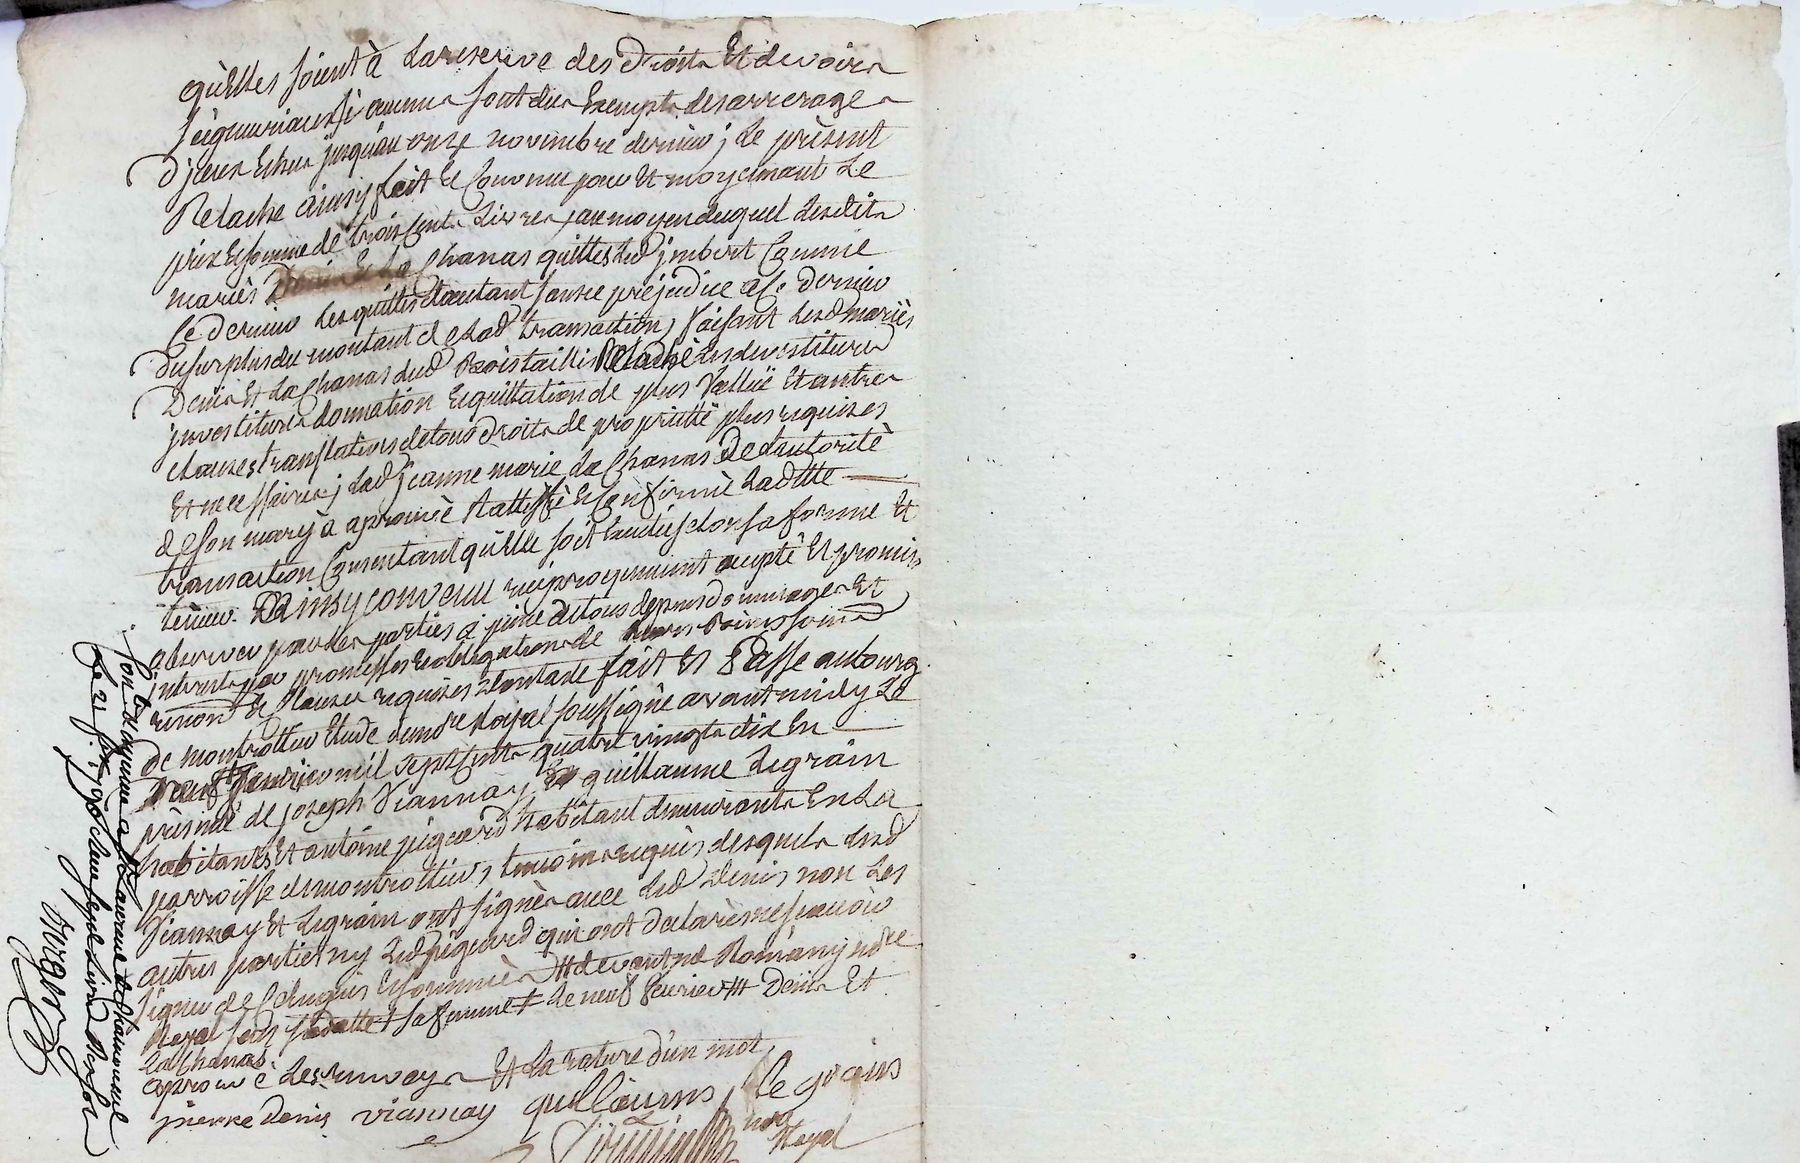 quElles soient à La reserve des Droits Et devoirs
seigneuriaux si aucuns sont dus Exempts des arrerages
D'iceux Echus jusquau onze novembre dernier ; Le présent
Relache ainsy fait Et Convenu pour Et moyennant Le
prix Et somme de trois Cents Livres, au moyen duquel Lesdits
mariés Denis Et La Chanas quittes Led imbert Comme
Ce dernier Les quittes dautant sans préjudice a Ce dernier
du surplus du montant de Lad transaction, faisant Lesd mariés
Denis Et La Chanas dud Bois taillis Relaché Les devestitures
investitures donnation Et quittation de plus Vallue Et autres
clauses translatives de tous droits de proprietté plus requises
Et necessaires ; Lad jeanne marie La Chanas De Lautorité
de son mary à aprouvé Rattiffié Et Confirmé Laditte
transaction Consentant quElle soit Exécutée selon sa forme Et
teneur. Ainsy convenu réciproquement accepté Et promis
observer par Les parties à peine de tous depens dommages Et
interets par promesses Et obligations de Leurs Biens soumd
renond Et Clauses requises dont acte fait Et Passé au bourg
de montrottier Etude du nore Royal soussigné avant midy Le
neuf janvier mil sept Cents quatre vingts dix En
présence de joseph Viannay Et guillaume Legrain
habitants Et antoine piegaurd habitant demeurants En La
parroisse de montrottier, temoins requis desquels Lesd
Viannay Et Legrain ont signés avec Led Denis non Les
autres parties ny Led piegaurd qui ont déclarés ne sçavoir
signer de Ce Enquis Et sommés # devant me Romany nore
Royal sous sa datte + sa femme + Le neuf fevrier ### Denis Et
La Chanas
aprouvé Les renvoys Et La rature d'un mot
pierre denis viannay guillaume Le grain
nore Royal
Le 21 1790 Reçu